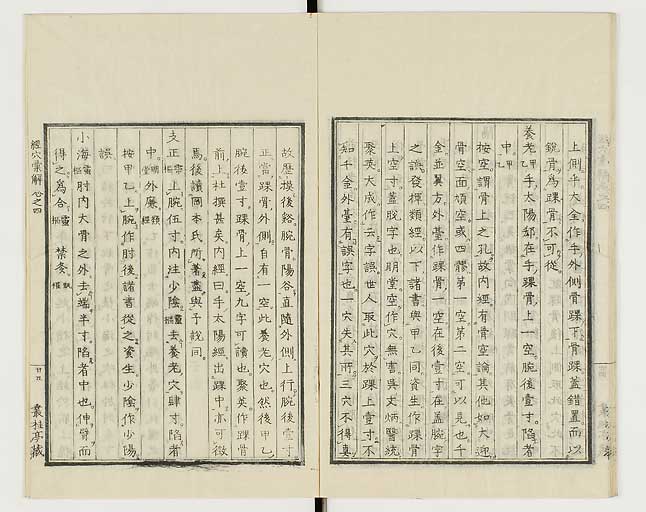 上側手大全作手外側骨踝下骨踝蓋錯置而以
銳骨為踝骨不可從
養老甲乙手太陽郄在手踝骨上一空腕後壹寸陷者
中甲乙
按空謂骨上之孔故内經有骨空論其他如大迎
骨空面頄空或四髎第一空第二空可以見也千
金並翼方外臺作踝骨一空在後壹寸在蓋腕字
之譌發揮類經以下諸書與甲乙同資生作踝骨
上空寸蓋脫字也明堂空作穴無害吳文炳醫統
聚英大成作云字誤世人取此穴於踝上壹寸不
知千金外臺有誤字也一穴失其所三穴不得真
故歷模後谿腕骨陽谷直隨外側上行腕後壹寸
正當踝骨外側自有一空此養老穴也然後甲乙
腕後壹寸踝骨上一空九字可讀也聚英作踝骨
前上杜撰甚矣内經曰手太陽經出踝中亦可徵
焉後讀岡本氏所著蓋與予說同
支正靈樞上腕伍寸内注少陰靈樞去養老穴肆寸陷者
中明堂外廉類經
按甲乙上腕作肘後諸書從之資生少陰作少陽
誤
小海靈樞肘内大骨之外去端半寸陷者中也伸臂而
得之為合靈樞禁灸
經穴彙解 卷之四
廿五
叢桂亭藏